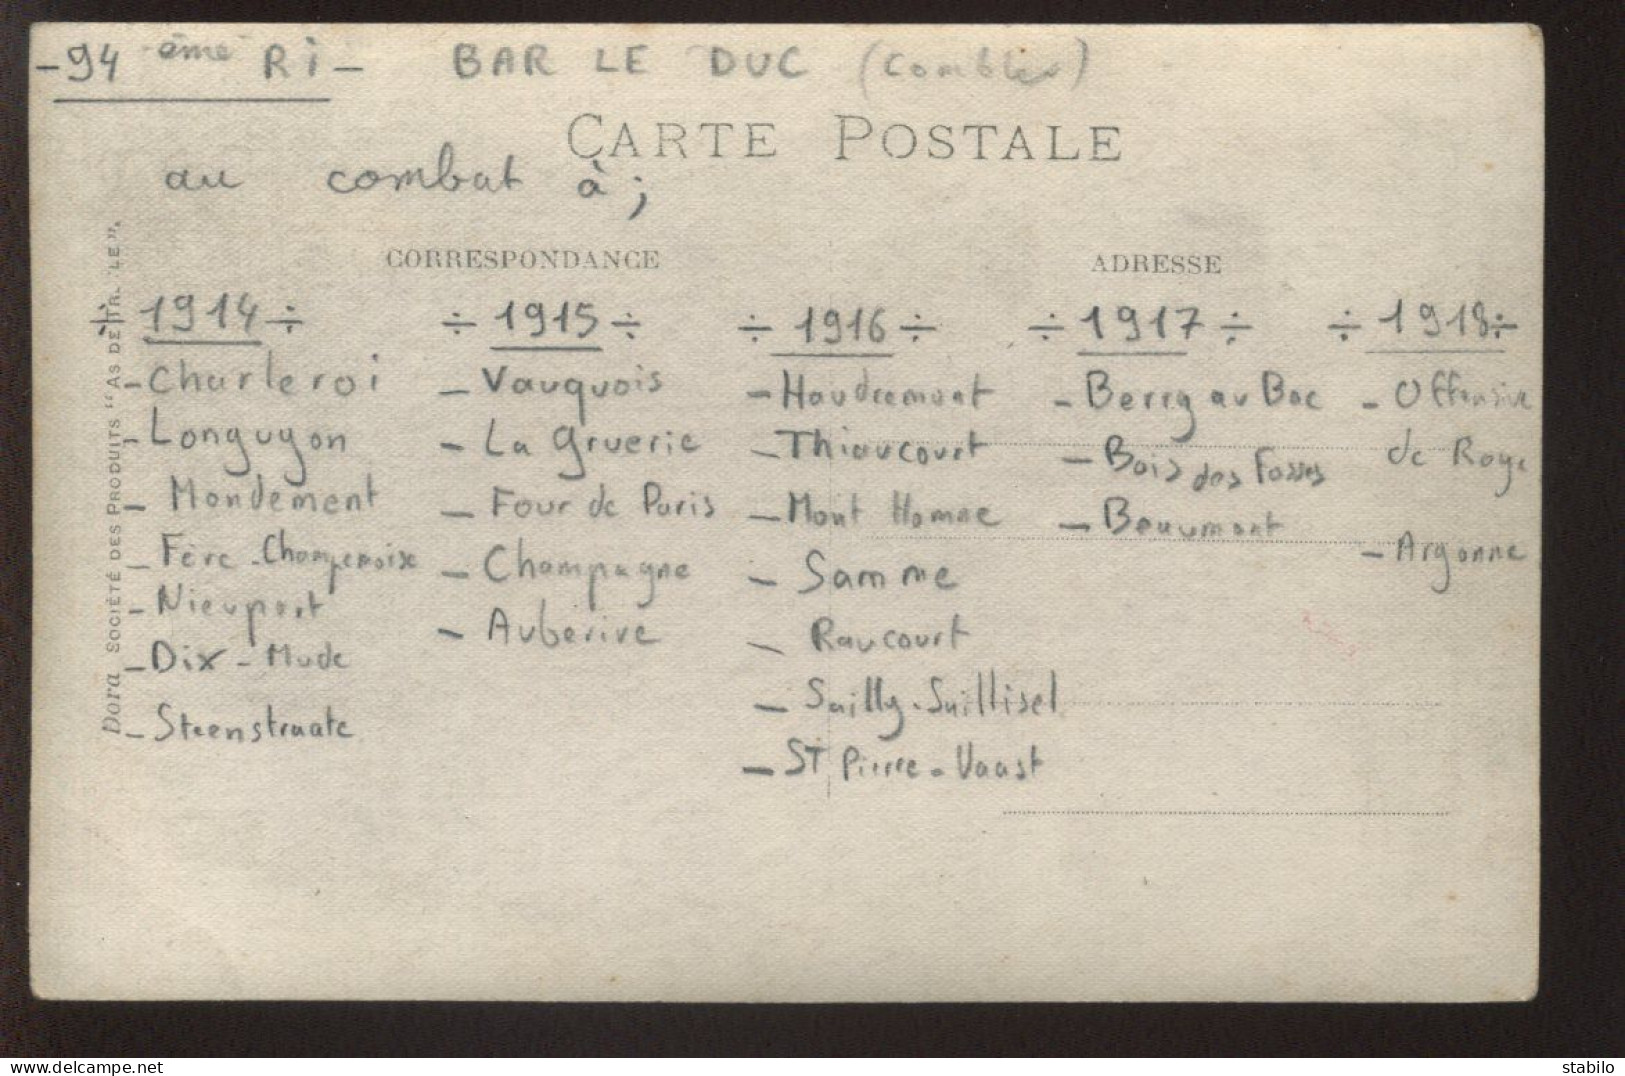 - 94 ème Ri - BAR LE DUC (Combles)
CARTE POSTALE
au combat à ;
CORRESPONDANCE
ADRESSE
÷ 1914 ÷
- Charleroi
- Longuyon
- Mondement
- Fère-Champenoise
- Nieuport
- Dix-Mude
- Steenstraate
÷ 1915 ÷
- Vauquois
- La Gruerie
- Four de Paris
- Champagne
- Auberive
÷ 1916 ÷
- Haudremont
- Thiaucourt
- Mont Homme
- Somme
- Raucourt
- Sailly-Saillisel
- ST Pierre-Vaast
÷ 1917 ÷
- Berry au Bac
- Bois des Fosses
- Beaumont
÷ 1918 ÷
- Offensive
de Roye
- Argonne
Dora SOCIÉTÉ DES PRODUITS "AS DE TR. LE".
stabilo 's album